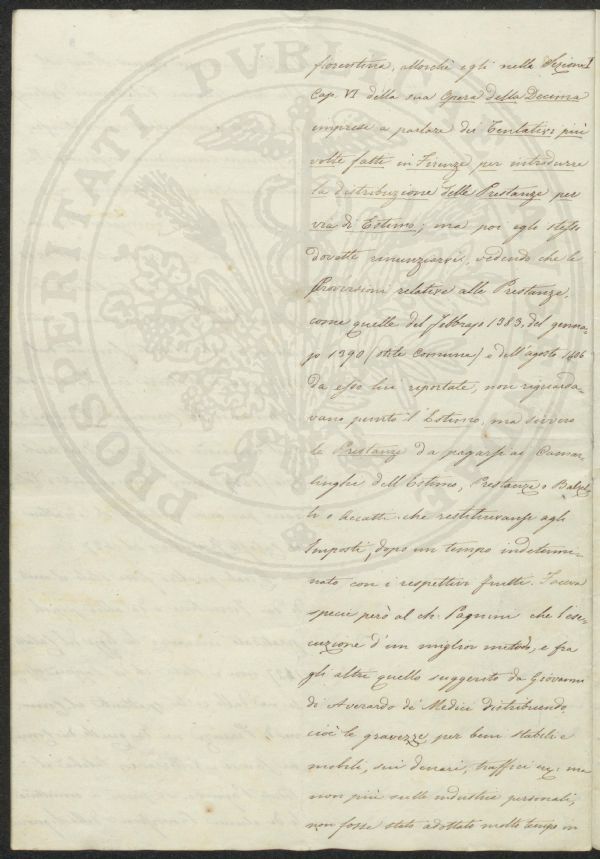 fiorentina, allorchè egli nella Sezione I
Cap. VI della sua Opera della Decima
imprese a parlare dei Tentativi più
volte fatti in Firenze per introdurre
la distribuzione delle Prestanze per
via di Estimo; ma poi egli stesso
dovette rinunziarvi, vedendo che le
Provvisioni relative alle Prestanze,
come quelle del febbrajo 1383, del genna-
jo 1390 (stile Comune) e dell'agosto 1406
da esso lui riportate, non riguarda-
vano punto l'Estimo, ma sivvero
le Prestanze da pagarsi ai Camar-
linghi dell'Estimo, Prestanze o Balzel-
li o Accatti che restituivansi agli
Imposti, dopo un tempo indetermi-
nato con i respettivi frutti. Faceva
specie però al ch. Pagnini che l'ese-
cuzione d'un miglior metodo, e fra
gli altri quello suggerito da Giovanni
di Averardo de' Medici distribuendo,
cioè le gravezze per beni stabili e
mobili, sui denari, traffici ec; ma
non più sulle industrie personali,
non fosse stato adottato molto tempo in
PROSPERITATI PVBLICAE